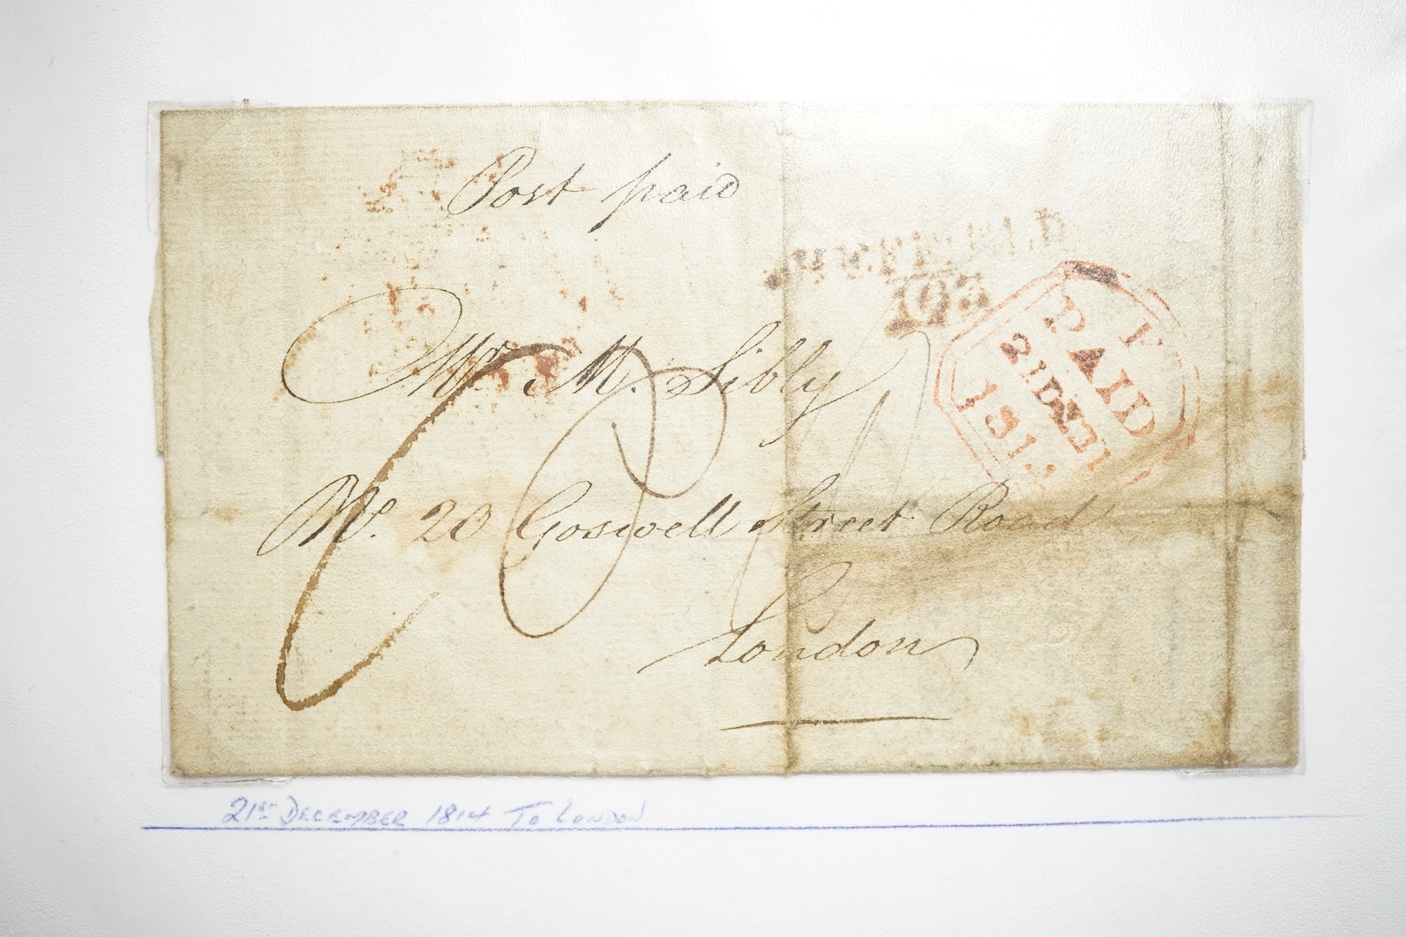 Post paid
193
F
PAID
21 DE 21
181
Mr. M. Sibly
No. 20 Goswell Street Road
London
21st DECEMBER 1814 TO LONDON